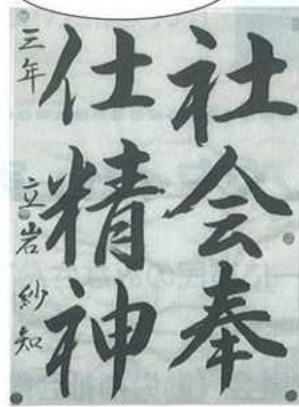 社会奉
仕精神
三年 立岩 紗知